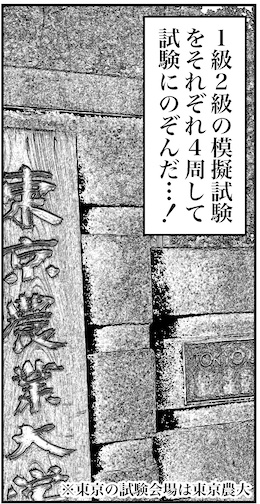 １級２級の模擬試験
をそれぞれ４周して
試験にのぞんだ…！
東京農業大学
TOKYO
※東京の試験会場は東京農大